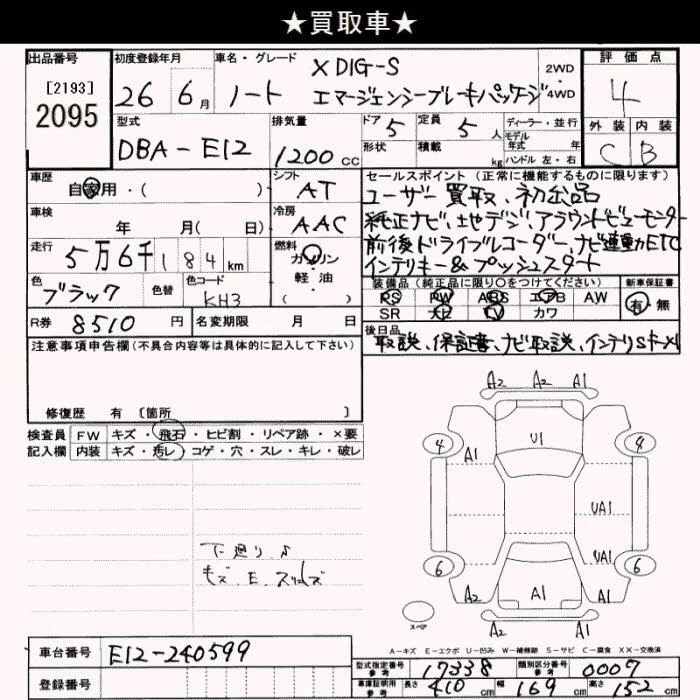 ★買取車★
出品番号 初度登録年月 車名・グレード 評価点
[2193]
2095
26 6月 ノート X DIG-S
エマージェンシーブレーキパッケージ
2WD
4WD
4
型式 排気量 ドア 定員 ディーラー・並行
DBA-E12 1200cc 5 5人
形状 積載 kg
モデル年式 年
ハンドル 左・右
外装 内装
C B
車歴 自家用・( )
シフト AT
車検 年 月( 日)
冷房 AAC
走行 5万6千184km
燃料 ガソリン
軽油
( )
色 ブラック 色替 色コード KH3
R券 8510円 名変期限 月 日
セールスポイント(正常に機能するものに限ります)
ユーザー買取、初出品
純正ナビ、地デジ、アラウンドビューモニター
前後ドライブレコーダー、ナビ連動ETC
インテリキー&プッシュスタート
装備品(純正品に限り○をつけてください) 新車保証書
PS PW ABS エアB AW
SR ナビ TV カワ
有 無
後日品
取説、保証書、ナビ取説、インテリSキーx1
注意事項申告欄(不具合内容等は具体的に記入して下さい)
修復歴 有 〔箇所 〕
検査員 FW キズ・飛石・ヒビ割・リペア跡・×要
記入欄 内装 キズ・汚レ・コゲ・穴・スレ・キレ・破レ
下廻り
キズ.E.
A2 A2 A1
4 U1 9
A1
UA1
UA1
6 6
A2 A1 A2
A2 A1
スペア
A-キズ E-エクボ U-凹み W-補修跡 S-サビ C-腐食 XX-交換済
車台番号 E12-240599
登録番号
型式指定番号 参考 17338 類別区分番号 参考 0007
車庫証明用 参考 長さ 410cm 幅 169cm 高さ 152cm